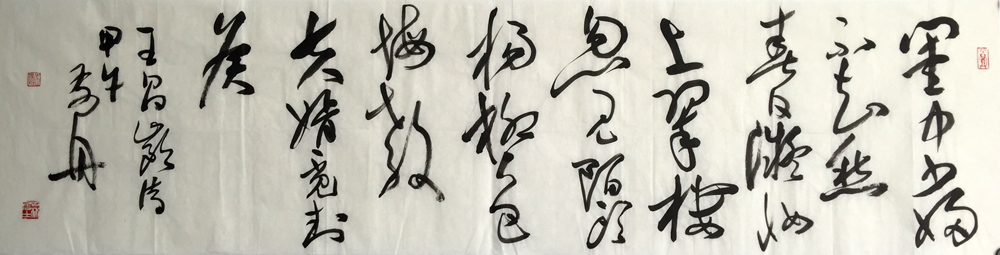 閨中少婦
不知愁
春日凝妝
上翠樓
忽見陌頭
楊柳色
悔教
夫婿覓封
侯
王昌齡詩
甲午